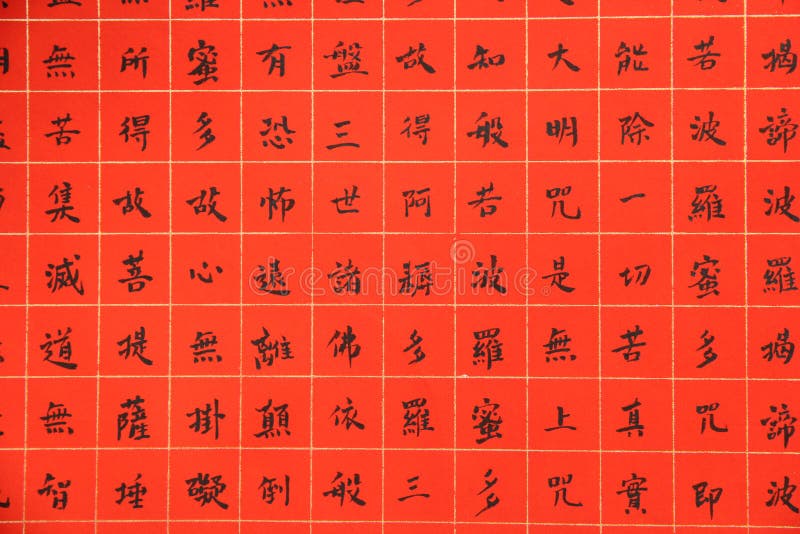 無苦集滅道無智
所得故菩提薩埵
蜜多故心無掛礙
有恐怖退離顛倒
盤三世諸佛依般
故得阿耨多羅三
知般若波羅蜜多
大明咒是無上咒
能除一切苦真實
若波羅蜜多咒即
揭諦波羅揭諦波
dreamstime.com